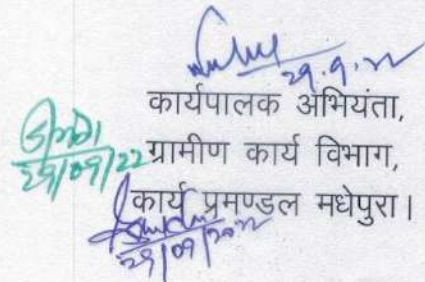 29.9.22
कार्यपालक अभियंता,
29/09/22 ग्रामीण कार्य विभाग,
कार्य प्रमण्डल मधेपुरा।
29/09/2022